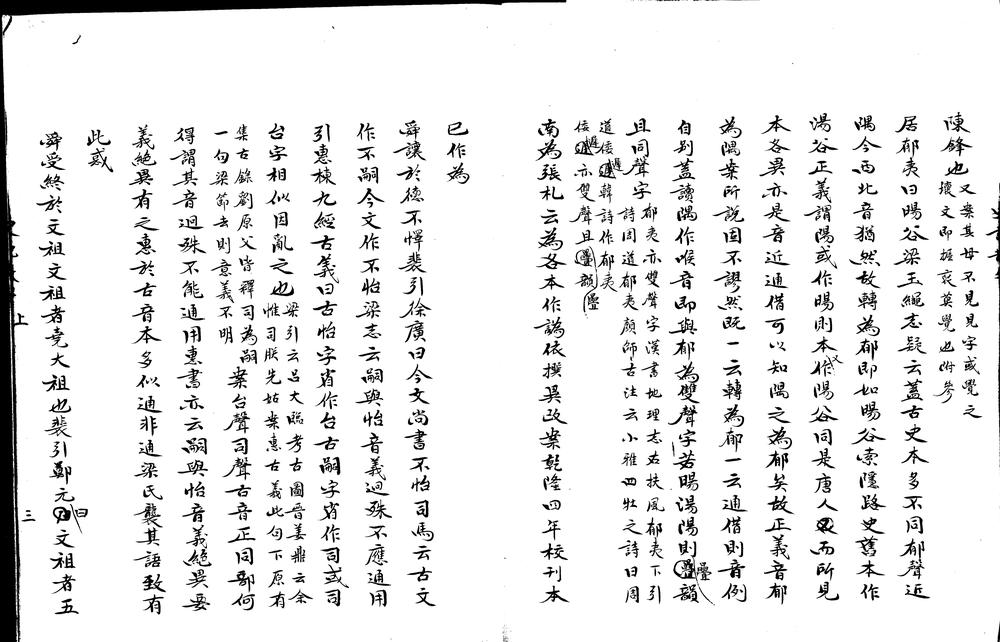 陳鋒也又案其母不見見字或覺之
壞文即握裒莫覺也附參
居郁夷曰暘谷梁玉繩志疑云蓋古史本多不同郁聲近
隅今西北音猶然故轉為郁即如暘谷索隱路史舊本作
湯谷正義謂陽或作暘則本又作陽谷同是唐人而所見
本各異亦是音近通借可以知隅之為郁矣故正義音郁
為隅案所說因不謬然既一云轉為郁一云通借則音例
自別蓋讀隅作喉音即與郁為雙聲字若暘湯陽則疊韻
且同聲字郁夷亦雙聲字漢書地理志右扶風郁夷下引
詩周道郁夷顏師古注云小雅四牡之詩曰周
道倭遲韓詩作郁夷
倭遲亦雙聲且疊韻
南為張札云為各本作譌依撰異改案乾隆四年校刊本
已作為
舜讓於德不懌裴引徐廣曰今文尚書不怡司馬云古文
作不嗣今文作不怡梁志云嗣與怡音義迥殊不應通用
引惠棟九經古義曰古怡字省作台古嗣字省作司或司
台字相似因亂之也梁引云呂大臨考古圖晉姜鼎云余
惟司朕先姑案惠古義此句下原有
集古錄劉原父皆釋司為嗣
一句梁節去則意義不明
案台聲司聲古音正同鄂何
得謂其音迥殊不能通用惠書亦云嗣與怡音義絕異要
義絕異有之惠於古音本多似通非通梁氏襲其語致有
此惑
舜受終於文祖文祖者堯大祖也裴引鄭元曰文祖者五
上
三